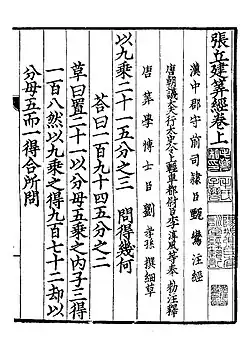 張立建算經卷上
漢中郡守前司隸臣甄鸞注經
唐朝議大夫行太史令上輕車都尉臣李淳風等奉勑注釋
唐算學博士臣劉孝孫撰細草
以九乘二十一五分之三 問得幾何
荅曰一百九十四五分之二
草曰置二十一以分母五乘之內子三得
一百八然以九乘之得九百七十二却以
分母五而一得合所問